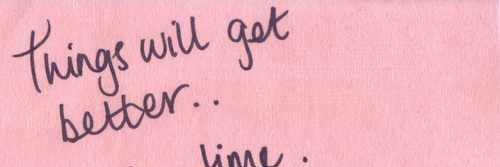 Things will get
better..